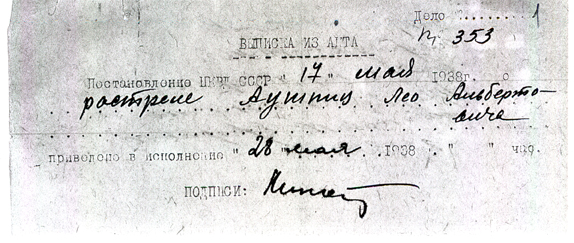 Дело №.......1
Пр. 353
ВЫПИСКА ИЗ АКТА
Постановление НКВД СССР " 17 " мая 1938г. о
расстреле Аушпиц Лео Альберто-
вича
приведено в исполнение " 28 " мая 1938 " " час.
ПОДПИСИ: